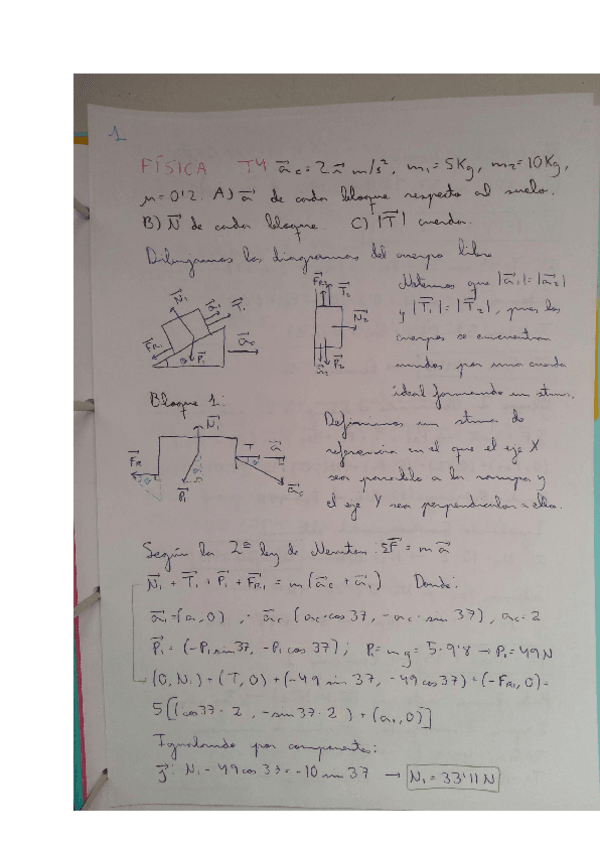 1
FÍSICA T4 a⃗c = 2 i⃗ m/s², m₁ = 5Kg, m₂ = 10Kg,
μ = 0'2. A) a⃗ de cada bloque respecto al suelo.
B) N⃗ de cada bloque. C) |T⃗| cuerda.
Dibujamos los diagramas del cuerpo libre
N⃗₁ a⃗₁ T⃗₁ F⃗R₁ P⃗₁ a⃗c
F⃗R₂ T⃗₂ N⃗₂ a⃗₂ P⃗₂
Notemos que |a⃗₁| = |a⃗₂|
y |T⃗₁| = |T⃗₂|, pues los
cuerpos se encuentran
unidos por una cuerda
ideal formando un stma.
Bloque 1:
N⃗₁ F⃗R T a⃗ P⃗₁ a⃗c
Definimos un stma de
referencia en el que el eje X
sea paralelo a la rampa y
el eje Y sea perpendicular a ella.
Según la 2ª ley de Newton: ΣF⃗ = m a⃗
N⃗₁ + T⃗₁ + P⃗₁ + F⃗R₁ = m(a⃗c + a⃗₁) Donde:
a⃗₁ = (a₁, 0) a⃗c (ac·cos 37, -ac·sin 37), ac = 2
P⃗₁ = (-P₁ sin 37, -P₁ cos 37); P = mg = 5·9'8 → P₁ = 49N
(0, N₁) + (T, 0) + (-49 sin 37, -49 cos 37) + (-FR₁, 0) =
5[(cos 37·2, -sin 37·2) + (a₁, 0)]
Igualando por componentes:
j⃗: N₁ - 49 cos 37 = -10 sin 37 → N₁ = 33'11 N